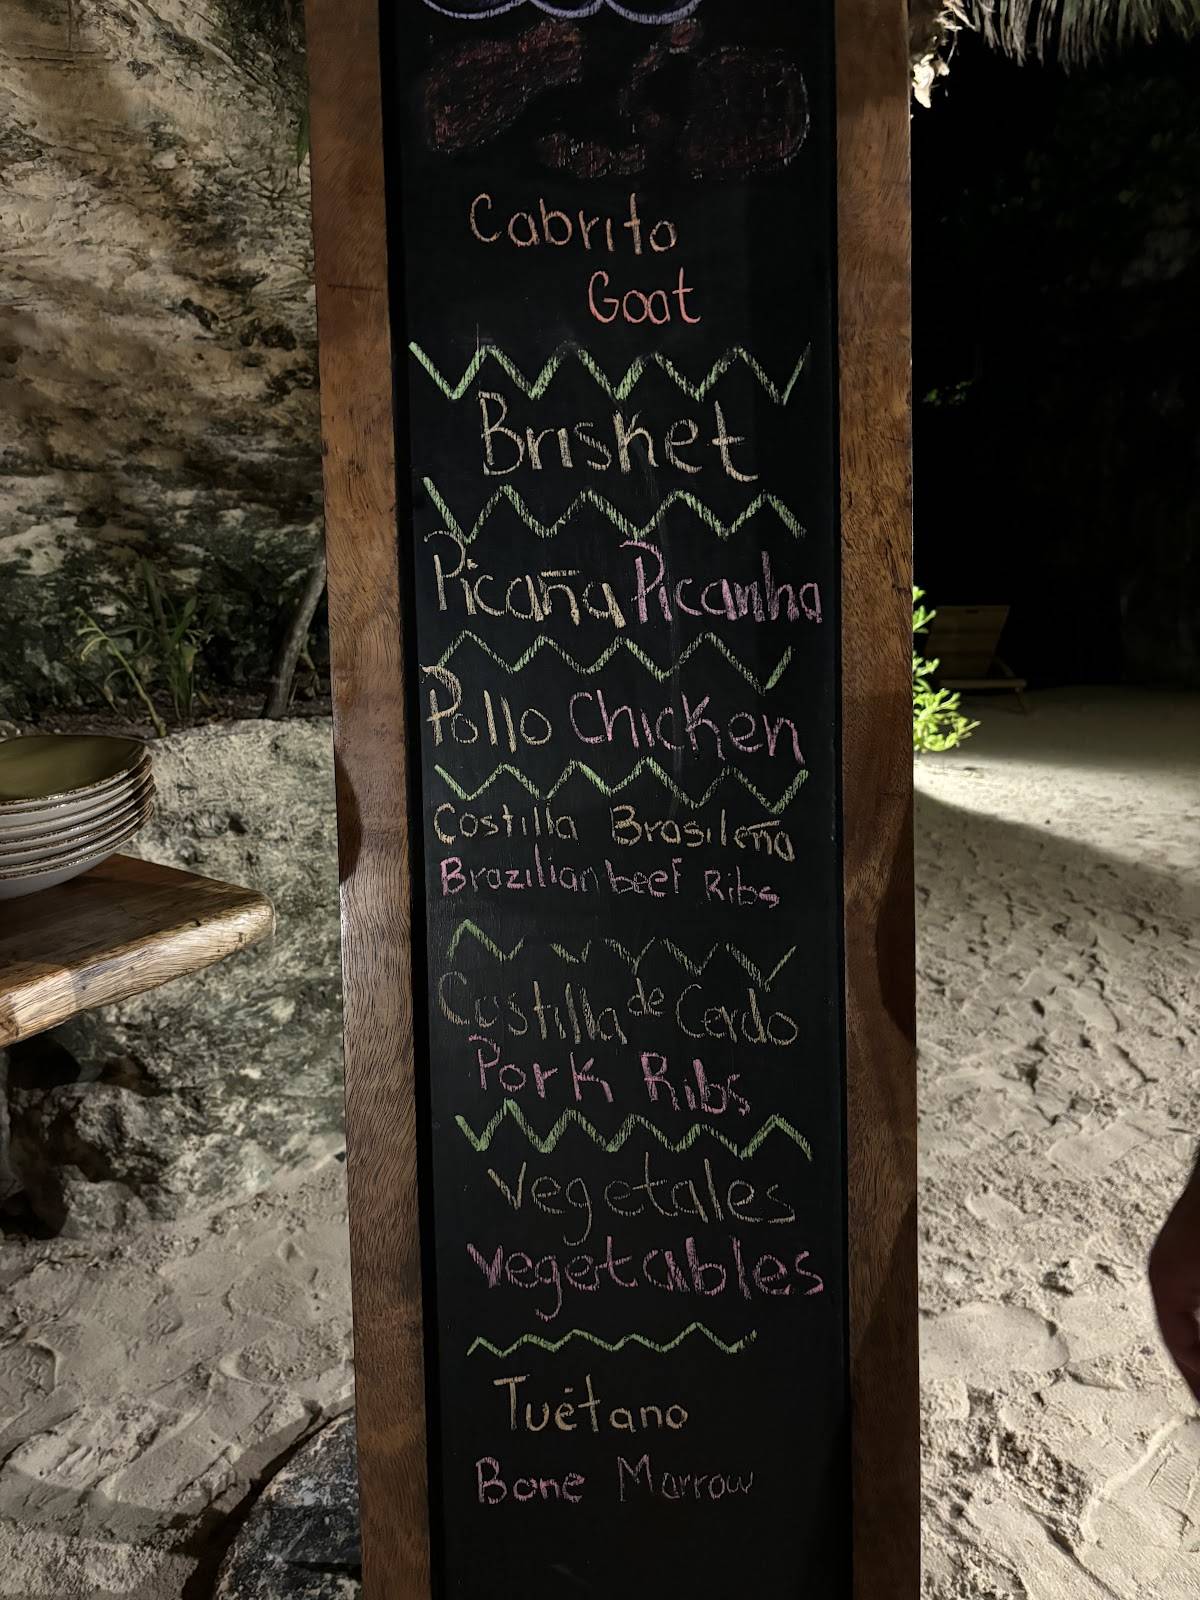 Cabrito
Goat
Brisket
Picaña Picanha
Pollo Chicken
Costilla Brasileña
Brazilian beef Ribs
Costilla de Cerdo
Pork Ribs
Vegetales
vegetables
Tuétano
Bone Marrow